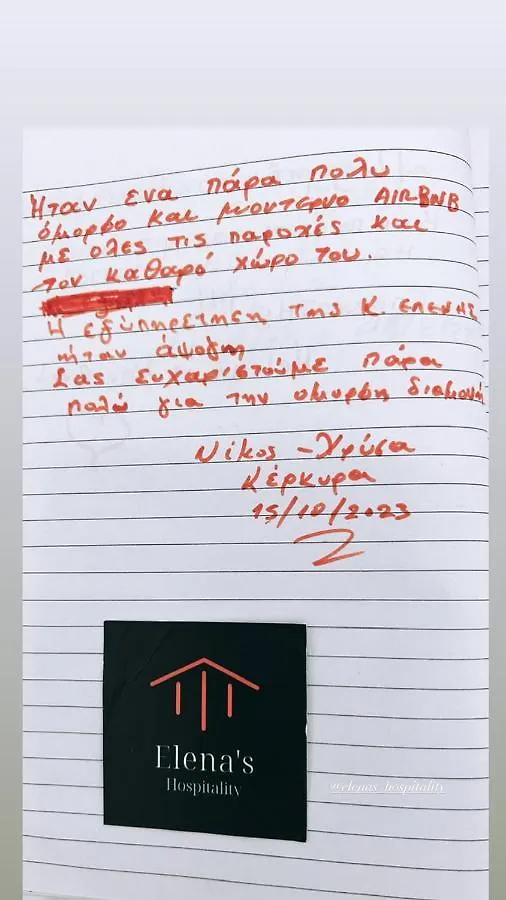 Ήταν ενα πάρα πολυ
όμορφο και μοντερνο AIRBNB
με ολες τις παροχές και
τον καθαρό χώρο του.
Η εξυπηρέτηση της κ. ελενης
ήταν άψογη
Σας ευχαριστούμε πάρα
πολύ για την ομορφη διαμονή
Νίκος - Χρύσα
Κέρκυρα
15/10/2023
Elena's
Hospitality
@elenas_hospitality